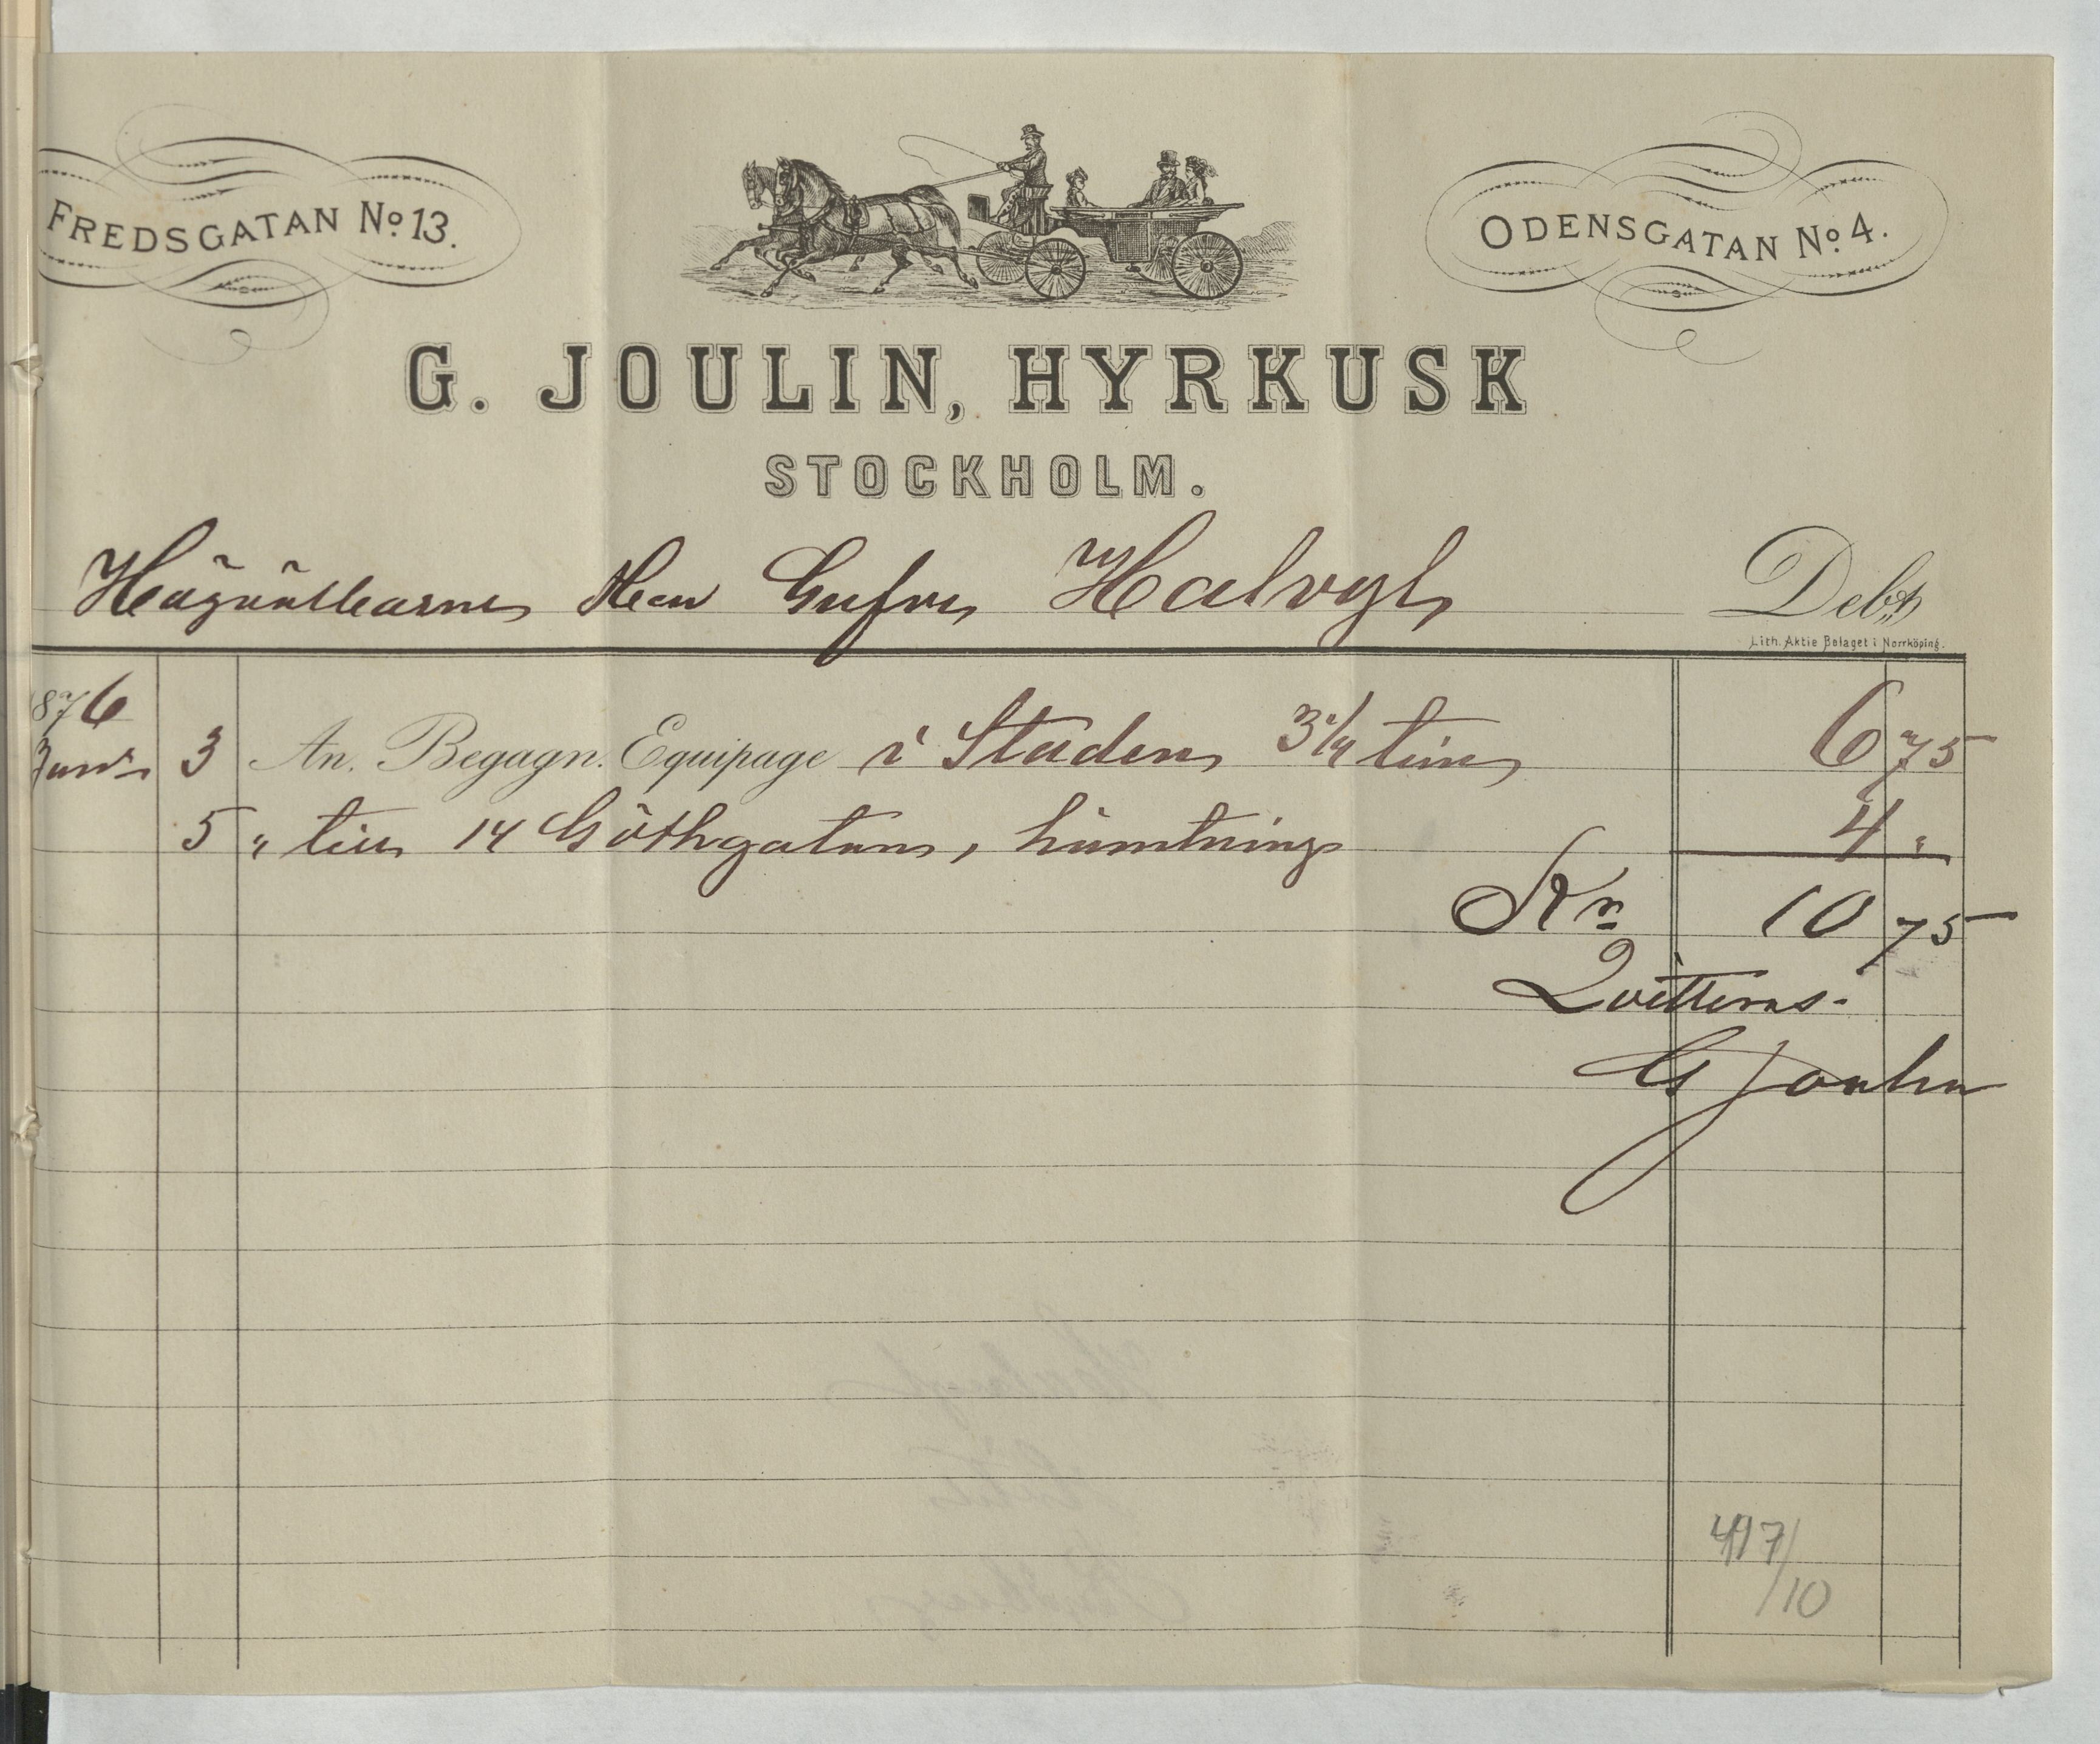 FREDSGATAN No 13.
ODENSGATAN No 4.
G. JOULIN, HYRKUSK
STOCKHOLM.
Högvälborne Herr Grefve Halwyl, Debet
Lith. Aktie Bolaget i Norrköping.
1876
Juni 3 An. Begagn. Equipage i Staden 3 1/4 tim 6 75
5 " till 14 Göthgatan, hämtning 4 "
Kr 10 75
Qvitteras.
G Joulin
417/10